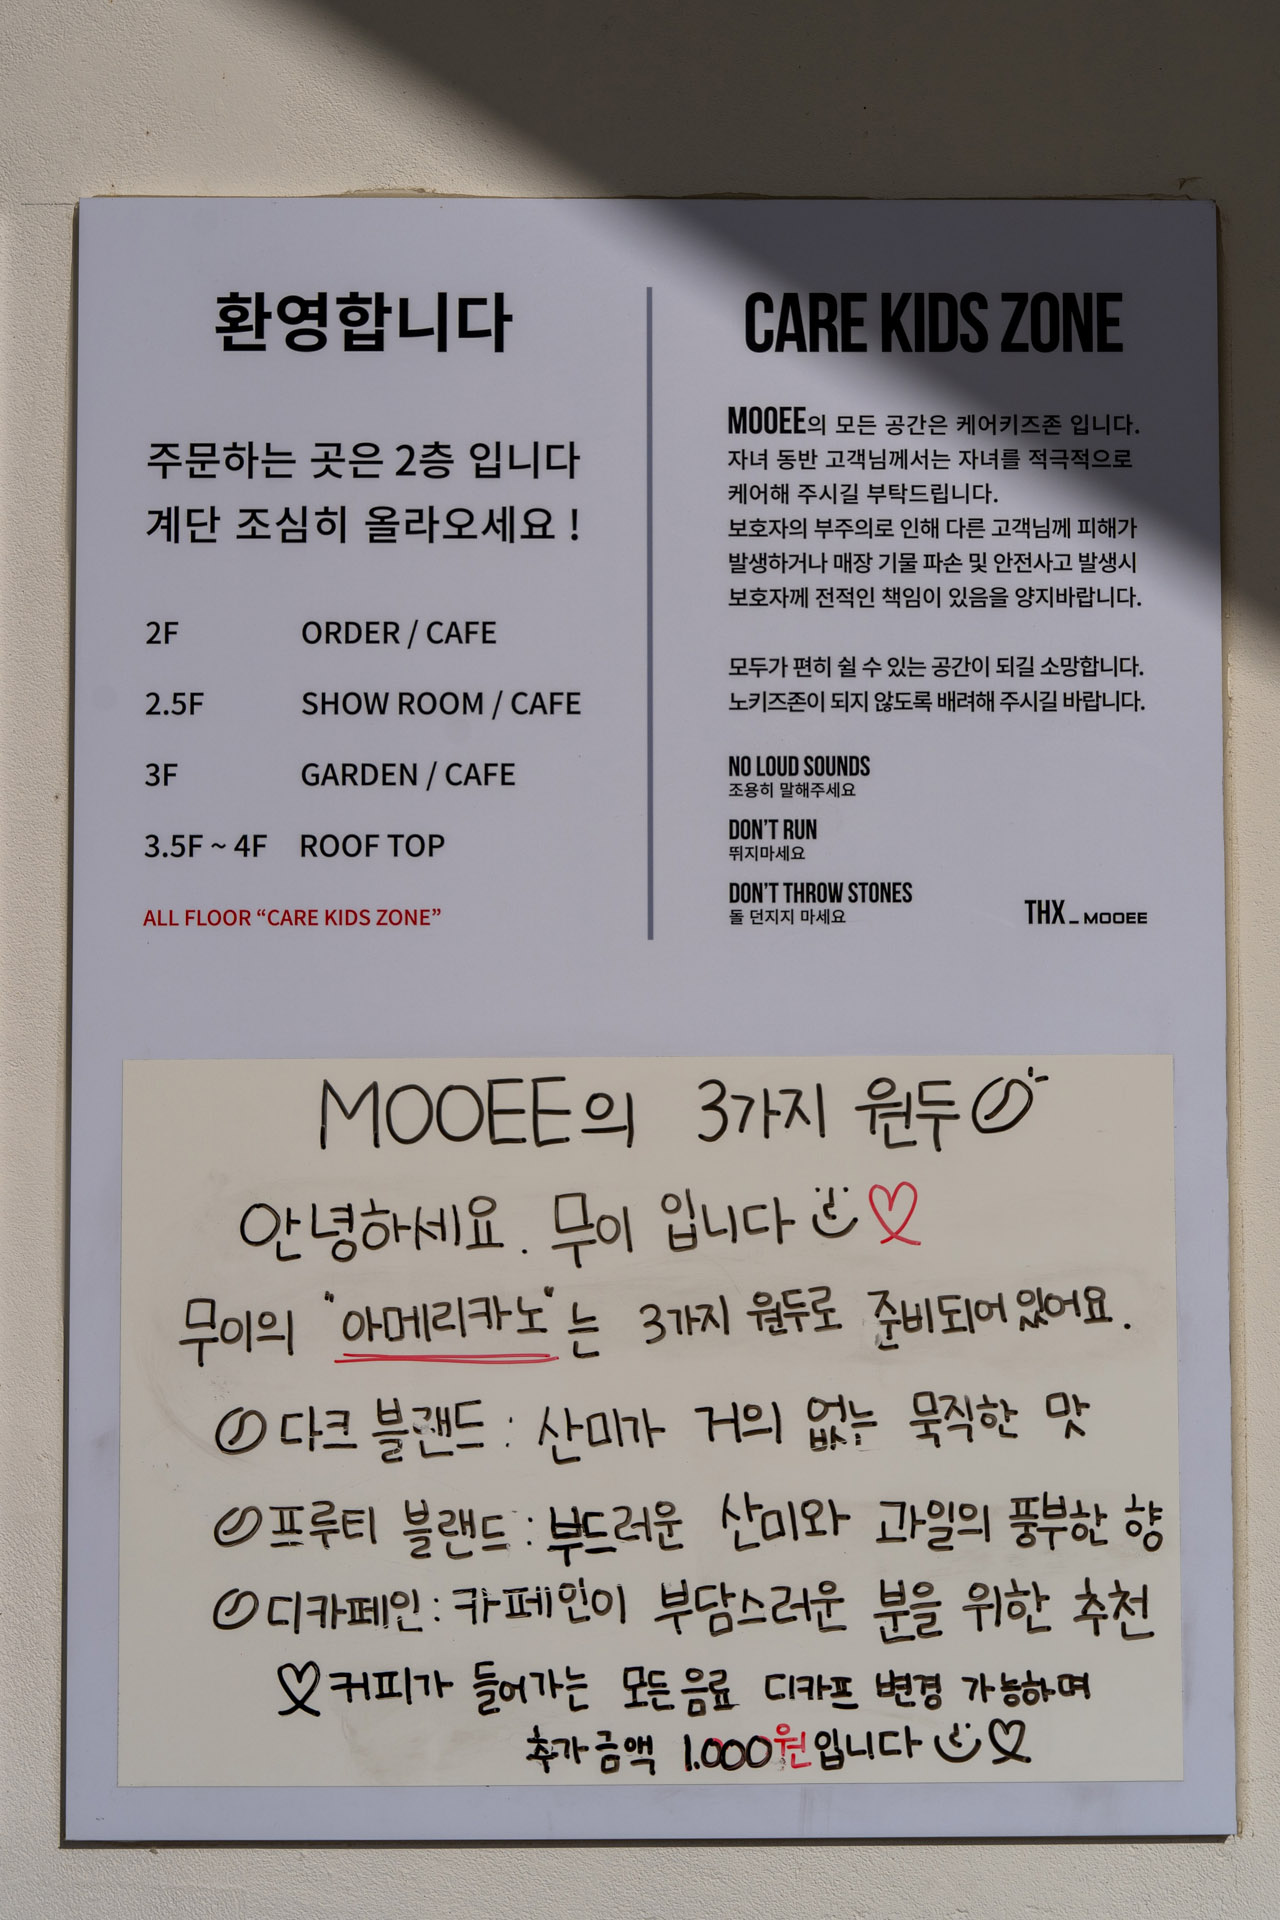 환영합니다
주문하는 곳은 2층 입니다
계단 조심히 올라오세요 !
2F ORDER / CAFE
2.5F SHOW ROOM / CAFE
3F GARDEN / CAFE
3.5F ~ 4F ROOF TOP
ALL FLOOR “CARE KIDS ZONE”
CARE KIDS ZONE
MOOEE의 모든 공간은 케어키즈존 입니다.
자녀 동반 고객님께서는 자녀를 적극적으로
케어해 주시길 부탁드립니다.
보호자의 부주의로 인해 다른 고객님께 피해가
발생하거나 매장 기물 파손 및 안전사고 발생시
보호자께 전적인 책임이 있음을 양지바랍니다.
모두가 편히 쉴 수 있는 공간이 되길 소망합니다.
노키즈존이 되지 않도록 배려해 주시길 바랍니다.
NO LOUD SOUNDS
조용히 말해주세요
DON'T RUN
뛰지마세요
DON'T THROW STONES
돌 던지지 마세요
THX_MOOEE
MOOEE의 3가지 원두
안녕하세요. 무이 입니다
무이의 "아메리카노"는 3가지 원두로 준비되어있어요.
다크 블랜드 : 산미가 거의 없는 묵직한 맛
프루티 블랜드 : 부드러운 산미와 과일의 풍부한 향
디카페인 : 카페인이 부담스러운 분을 위한 추천
♡커피가 들어가는 모든음료 디카프 변경 가능하며
추가금액 1.000원입니다